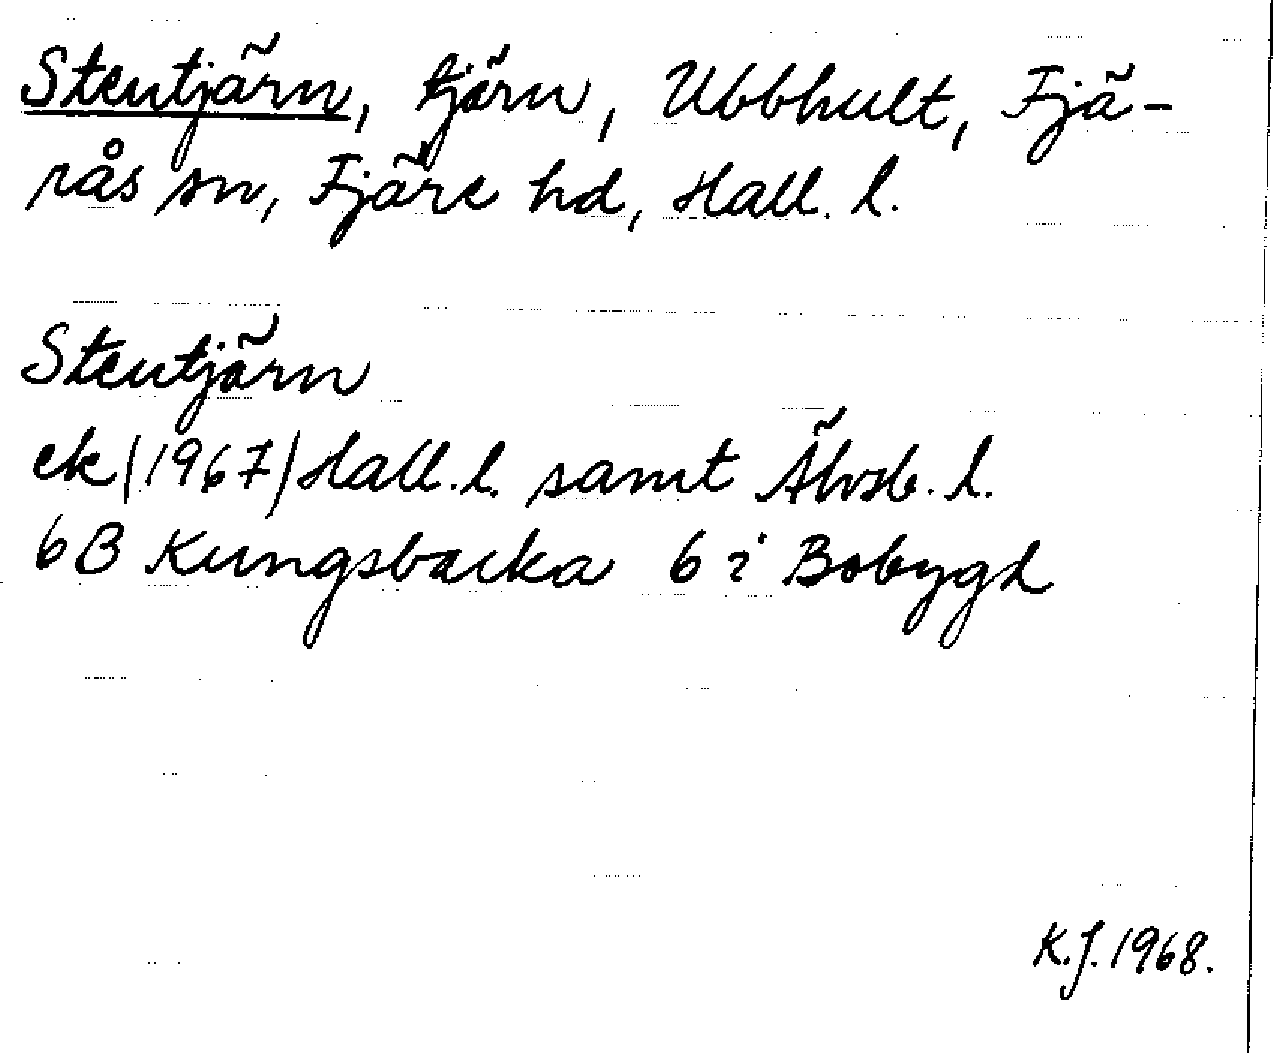 Stentjärn, tjärn, Ubbhult, Fjä-
rås sn, Fjäre hd, Hall. l.
Stentjärn
ek (1967) Hall. l. samt Älvsb. l.
6B Kungsbacka 6 i Bobygd
K.J. 1968.